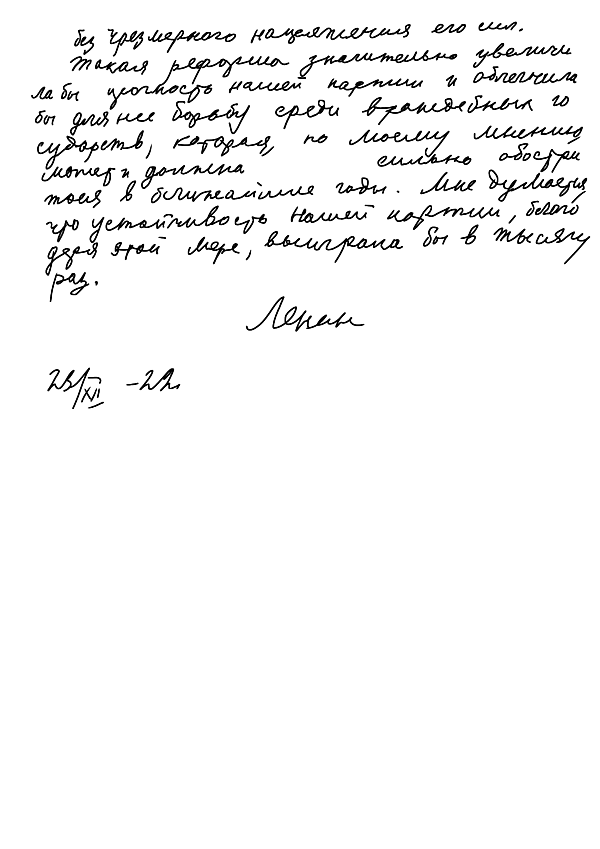 без чрезмерного напряжения его сил.
Такая реформа значительно увеличи
ла бы прочность нашей партии и облегчила
бы для нее борьбу среди враждебных го
сударств, которая, по моему мнению,
может и должна сильно обостри
ться в ближайшие годы. Мне думается,
что устойчивость нашей партии, благо
даря этой мере, выиграла бы в тысячу
раз.
Ленин
23/XII -22г.